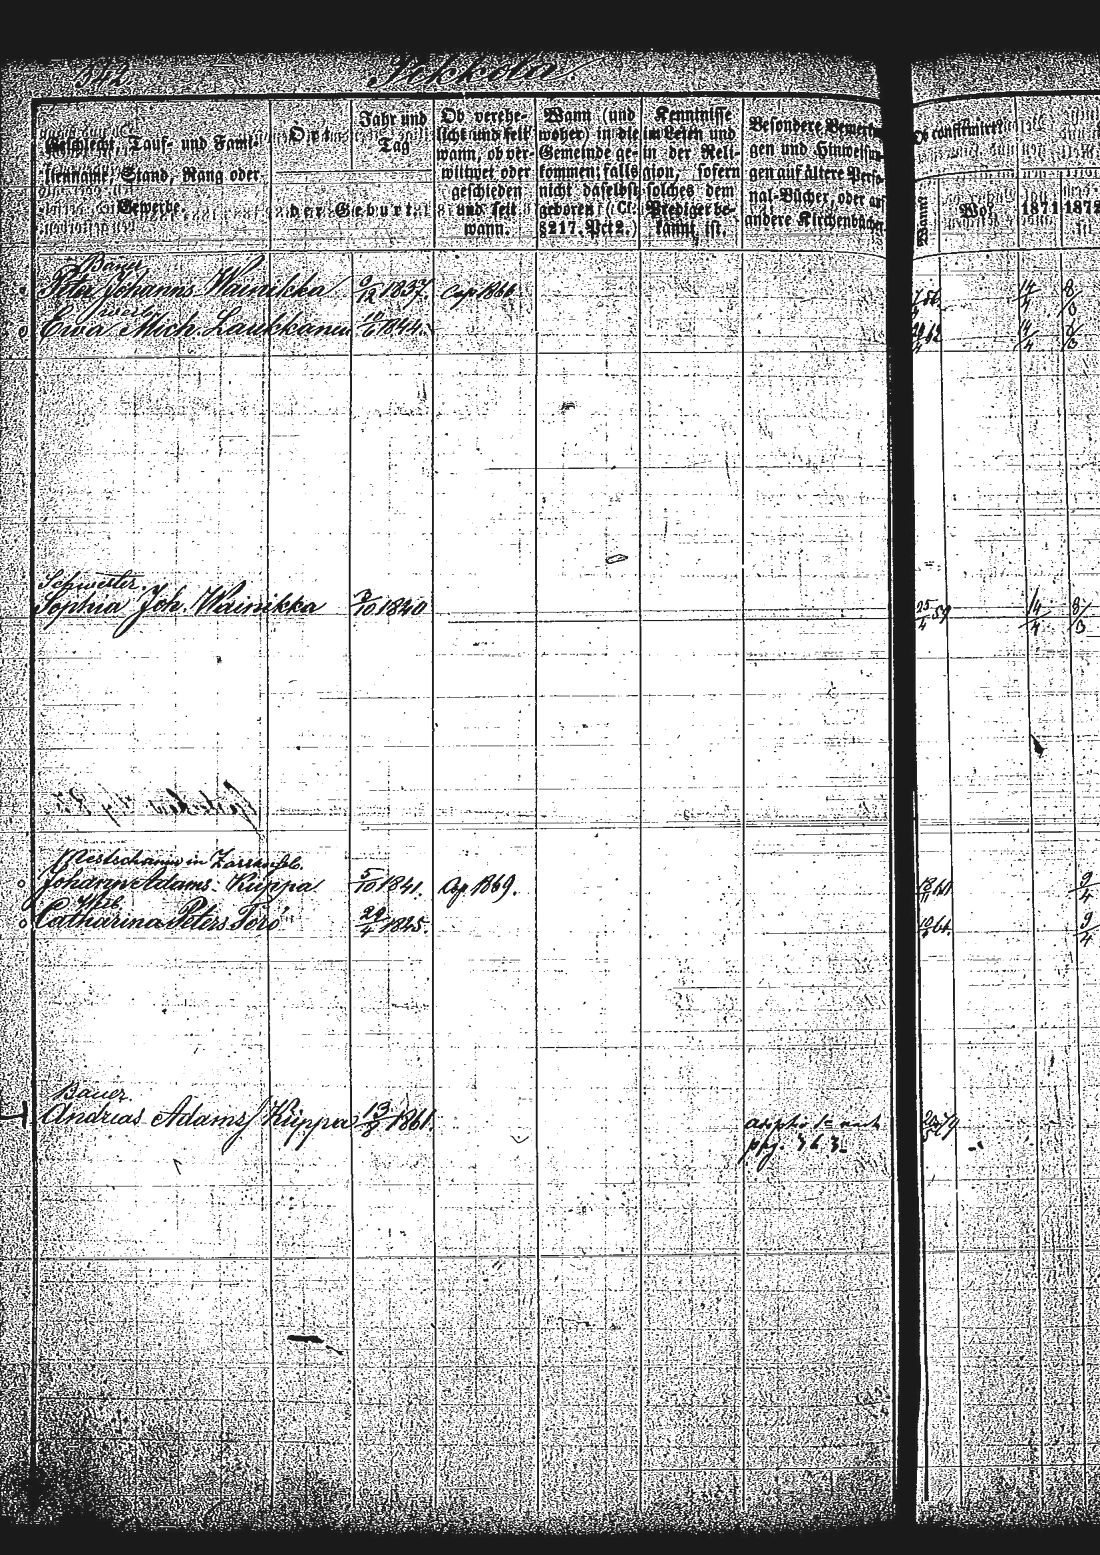 342
Jekkola
Geschlecht, Tauf- und Fami-
lienname, Stand, Rang oder
Gewerbe.
Ort
der Geburt.
Jahr und
Tag
Ob verehe-
licht und seit
wann, ob ver-
wittwet oder
geschieden
und seit
wann.
Wann (und
woher) in die
Gemeinde ge-
kommen; falls
nicht daselbst
geboren (Cf.
§217. Pct 2.)
Kenntnisse
im Lesen und
in der Reli-
gion, sofern
solches dem
Prediger be-
kannt ist.
Besondere Bemerkun-
gen und Hinweisun-
gen auf ältere Perso-
nal-Bücher, oder auf
andere Kirchenbücher.
Ob confirmirt?
Wann?
Wo?
1871
1872
Bauer
Peter Johanns Wainikka 6/12 1837. Cop 1866 14/4 8/3
Weib
Ewa Mich. Laukkanen 10/6 1844. 14/4 8/3
Schwester
Sophia Joh. Wainikka 2/10 1840 25/4 59 14/4 8/3
Johann Adams. Kuppa 5/10 1841. Cop. 1869. 9/4
Weib
Catharina Peters. Toro 29/4 1845. 9/4
Bauer.
Andreas Adams Kuppa 13/8 1861.